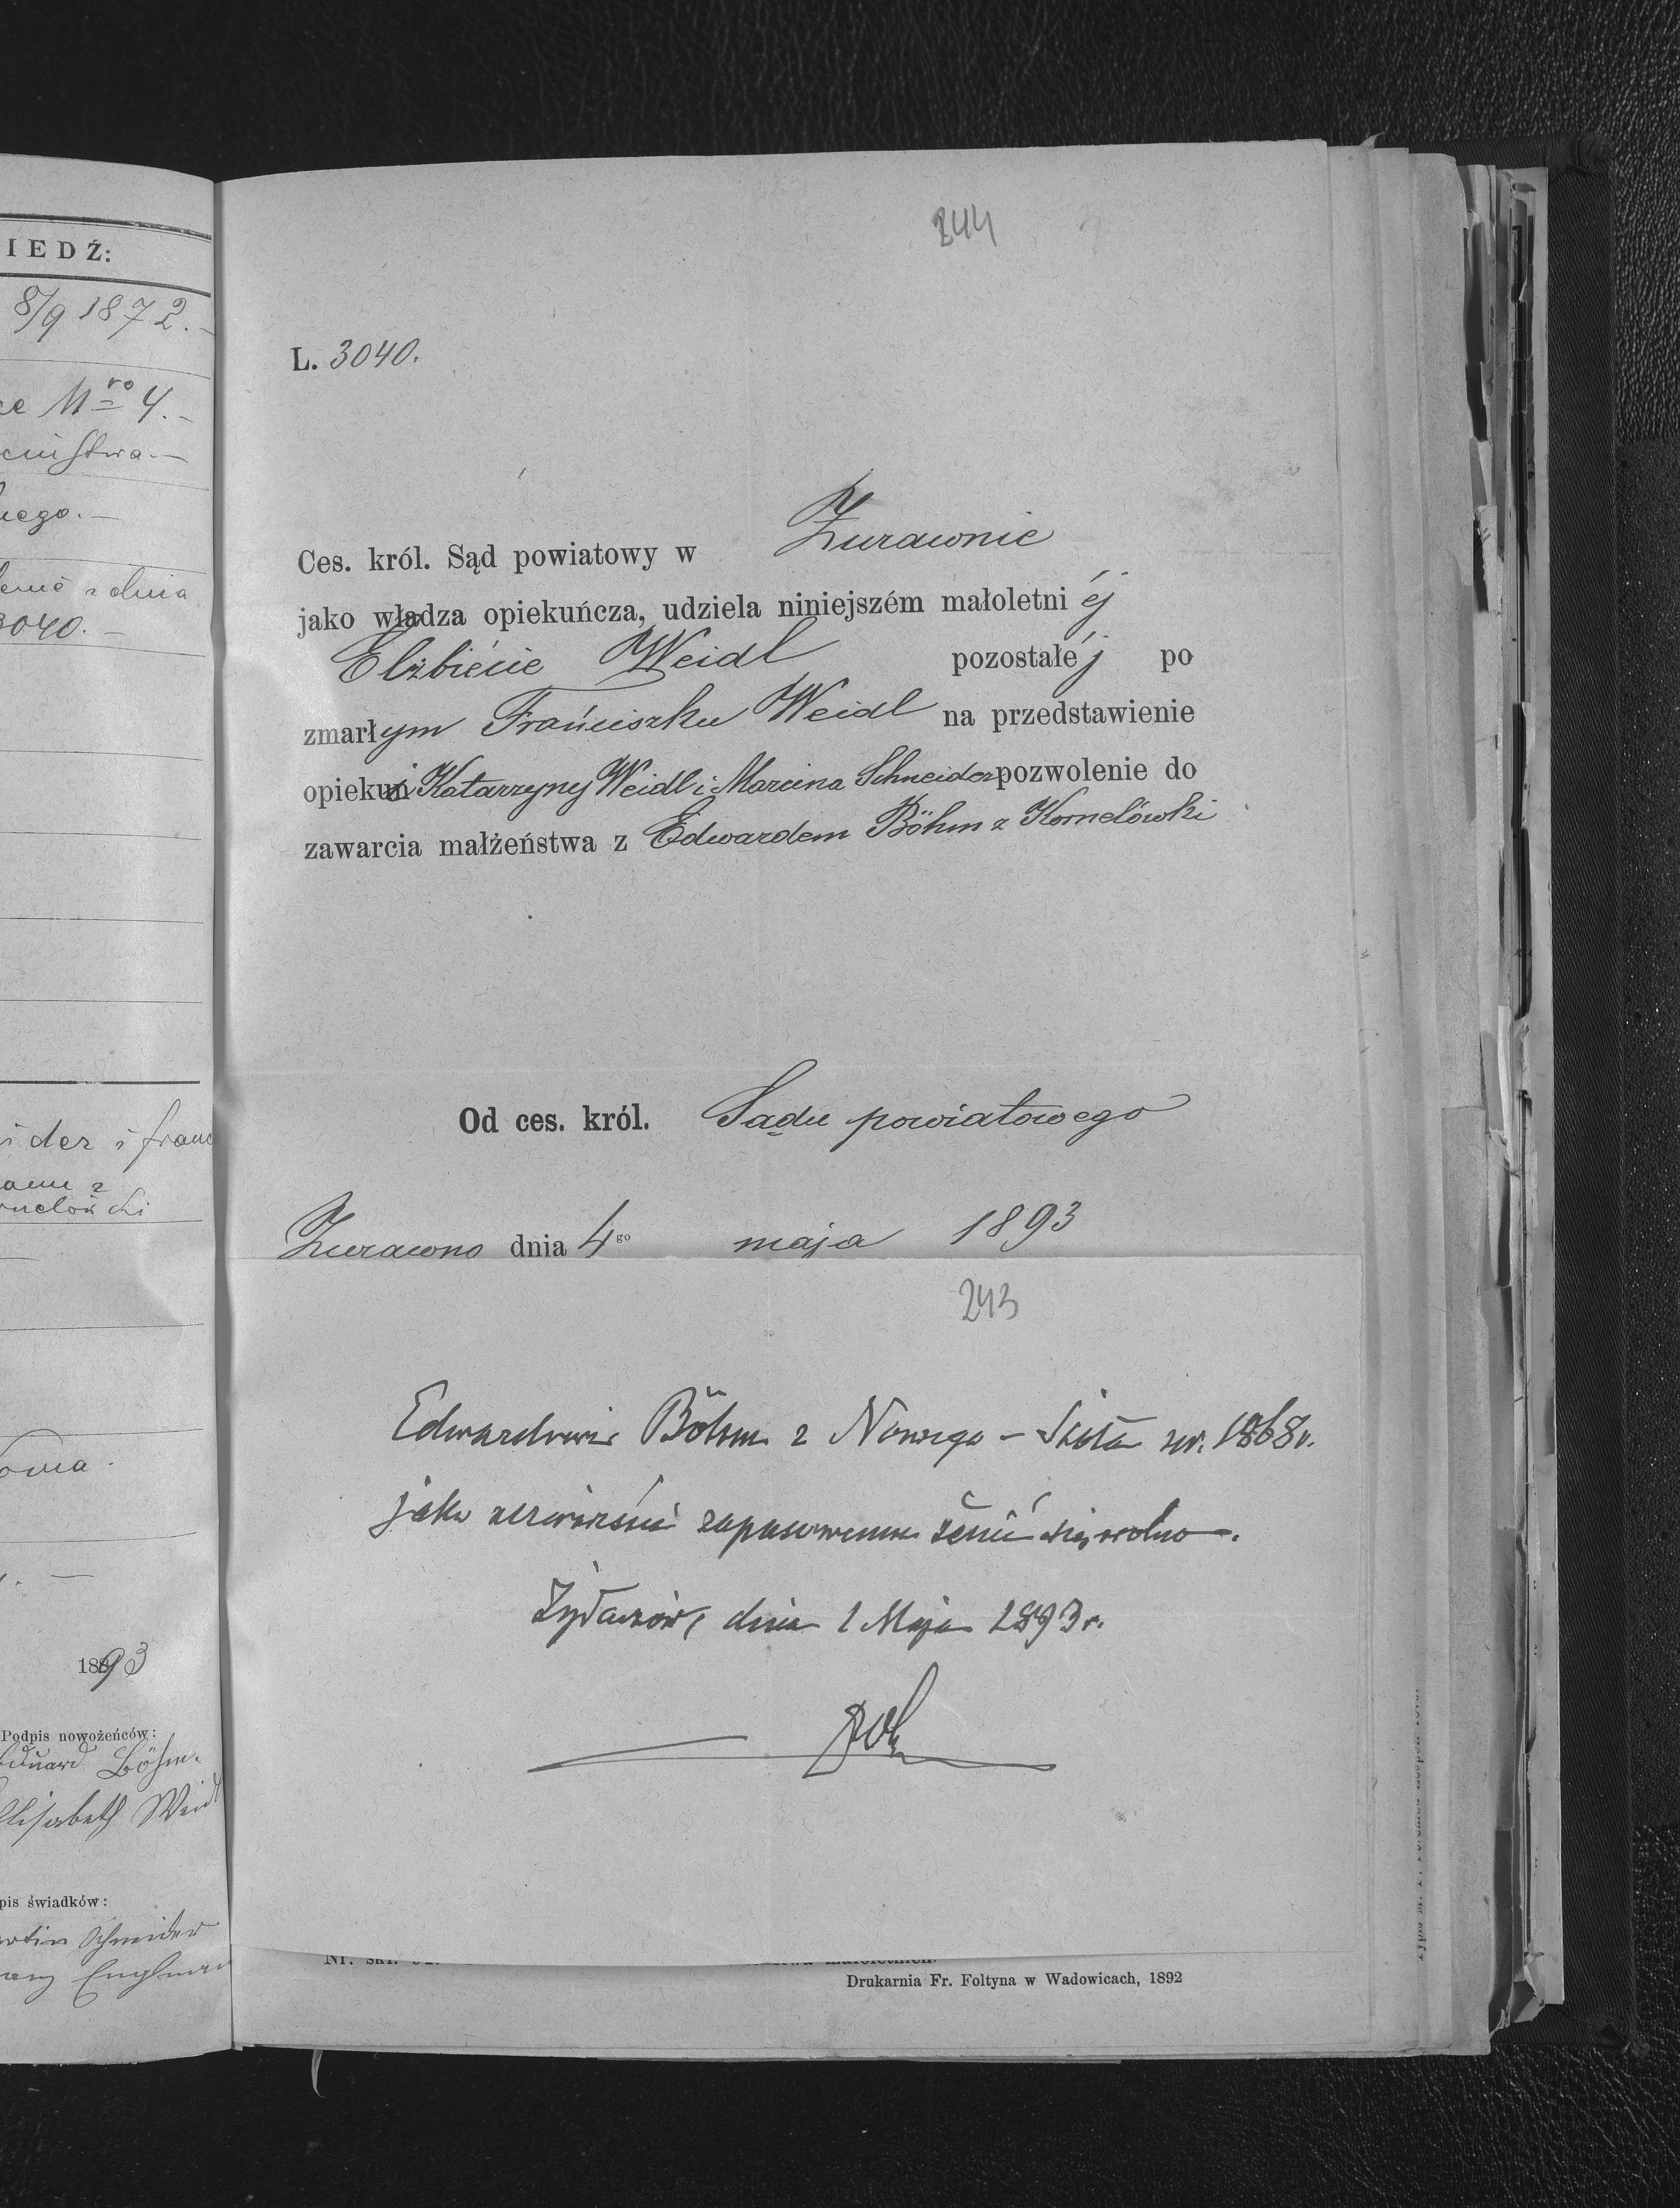 IEDŹ:
8/9 1872.-
ce Nro 4.-
eństwa.-
nego.-
z dnia
3040.-
ider i Franc
188 93
Podpis nowożeńców:
Eduard Böhm.
Elisabeth Weidl
pis świadków:
artin Schneider
anz Englman
244
L. 3040.
Ces. król. Sąd powiatowy w Żurawnie
jako władza opiekuńcza, udziela niniejszém małoletni éj
Elżbiécie Weidl pozostałéj po
zmarłym Franciszku Weidl na przedstawienie
opieku Katarzyny Weidl i Marcina Schneider pozwolenie do
zawarcia małżeństwa z Edwardem Böhm z Kornelówki
Od ces. król. Sądu powiatowego
Żurawno dnia 4go maja 1893
243
Edwardowi Böhm z Nowego-Sioła ur. 1868 r.
jako rezerwiście zapasowemu żenić się wolno-.
Żydaczów, dnia 1 Maja 1893 r.
Drukarnia Fr. Foltyna w Wadowicach, 1892